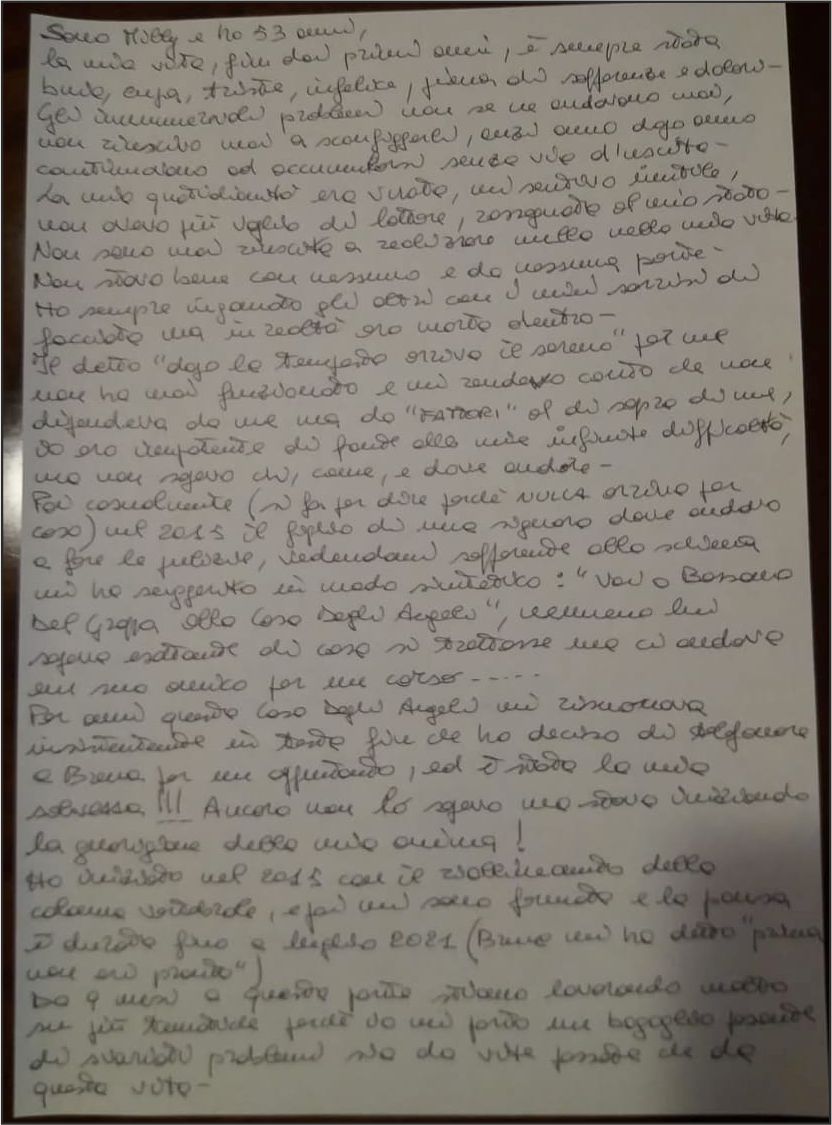 Sono Milly e ho 53 anni,
la mia vita, fin dai primi anni, è sempre stata
buia, cupa, triste, infelice, piena di sofferenze e dolori -
Gli innumerevoli problemi non se ne andavano mai,
non riuscivo mai a sconfiggerli, anzi anno dopo anno
continuavano ad accumularsi senza via d'uscita -
La mia quotidianità era vuota, mi sentivo inutile,
non avevo più voglia di lottare, rassegnata al mio stato -
Non sono mai riuscita a realizzare nulla nella mia vita
Non stavo bene con nessuno e da nessuna parte -
Ho sempre ingannato gli altri con i miei sorrisi di
facciata ma in realtà ero morta dentro -
Il detto "dopo la tempesta arriva il sereno" per me
non ha mai funzionato e mi rendevo conto che non
dipendeva da me ma da "FATTORI" al di sopra di me,
io ero impotente di fronte alle mie infinite difficoltà,
ma non sapevo chi, come, e dove andare -
Poi casualmente (si fa per dire perché NULLA arriva per
caso) nel 2015 il figlio di una signora dove andavo
a fare le pulizie, vedendomi sofferente alla schiena
mi ha suggerito in modo sintetico: "Vai a Bassano
Del Grappa alla Casa Degli Angeli", nemmeno lui
sapeva esattamente di cosa si trattasse ma ci andava
un suo amico per un corso -----
Per anni questa Casa Degli Angeli mi risuonava
insistentemente in testa fin che ho deciso di telefonare
a Bruna per un appuntamento, ed è stata la mia
salvezza !!! Ancora non lo sapevo ma stava iniziando
la guarigione della mia anima!
Ho iniziato nel 2015 con il riallineamento della
colonna vertebrale, e poi mi sono fermata e la pausa
è durata fino a luglio 2021 (Bruna mi ha detto "prima
non eri pronta")
Da 9 mesi a questa parte stiamo lavorando molto
su più tematiche perché io mi porto un bagaglio pesante
di svariati problemi sia da vite passate che da
questa vita -